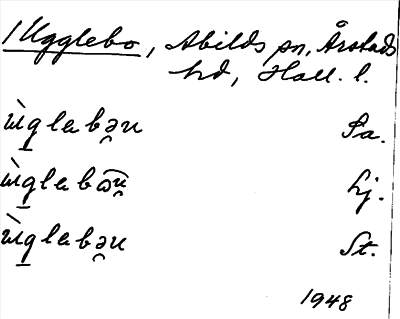 1 Ugglebo, Abilds sn, Årstads
hd, Hall. l.
ùglabən Sa.
ùglabən hj.
ùglabən St.
1948